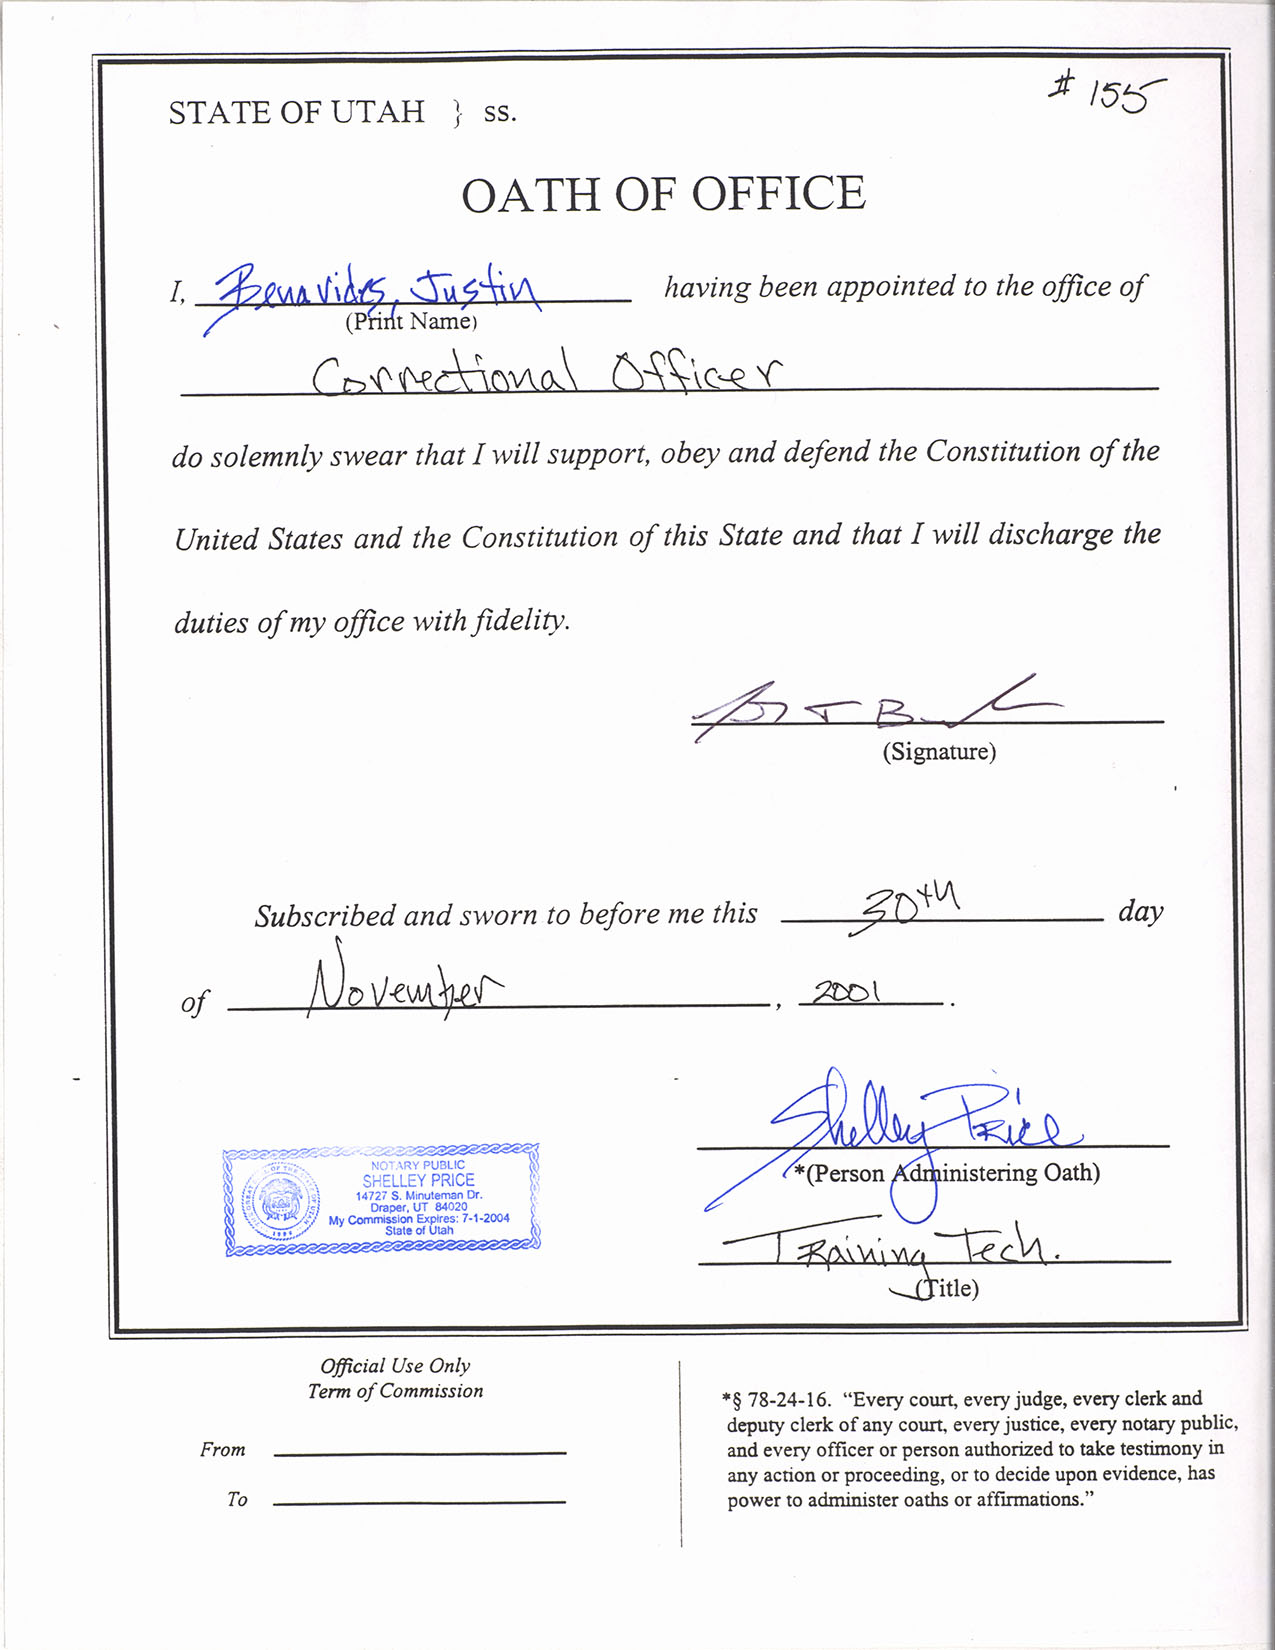 # 155
STATE OF UTAH } ss.
OATH OF OFFICE
I, Benavides, Justin having been appointed to the office of
(Print Name)
Correctional Officer
do solemnly swear that I will support, obey and defend the Constitution of the
United States and the Constitution of this State and that I will discharge the
duties of my office with fidelity.
(Signature)
Subscribed and sworn to before me this 30th day
of November, 2001.
Shelley Price
*(Person Administering Oath)
NOTARY PUBLIC
SHELLEY PRICE
14727 S. Minuteman Dr.
Draper, UT 84020
My Commission Expires: 7-1-2004
State of Utah
Training Tech.
(Title)
Official Use Only
Term of Commission
From
To
*§ 78-24-16. “Every court, every judge, every clerk and
deputy clerk of any court, every justice, every notary public,
and every officer or person authorized to take testimony in
any action or proceeding, or to decide upon evidence, has
power to administer oaths or affirmations.”